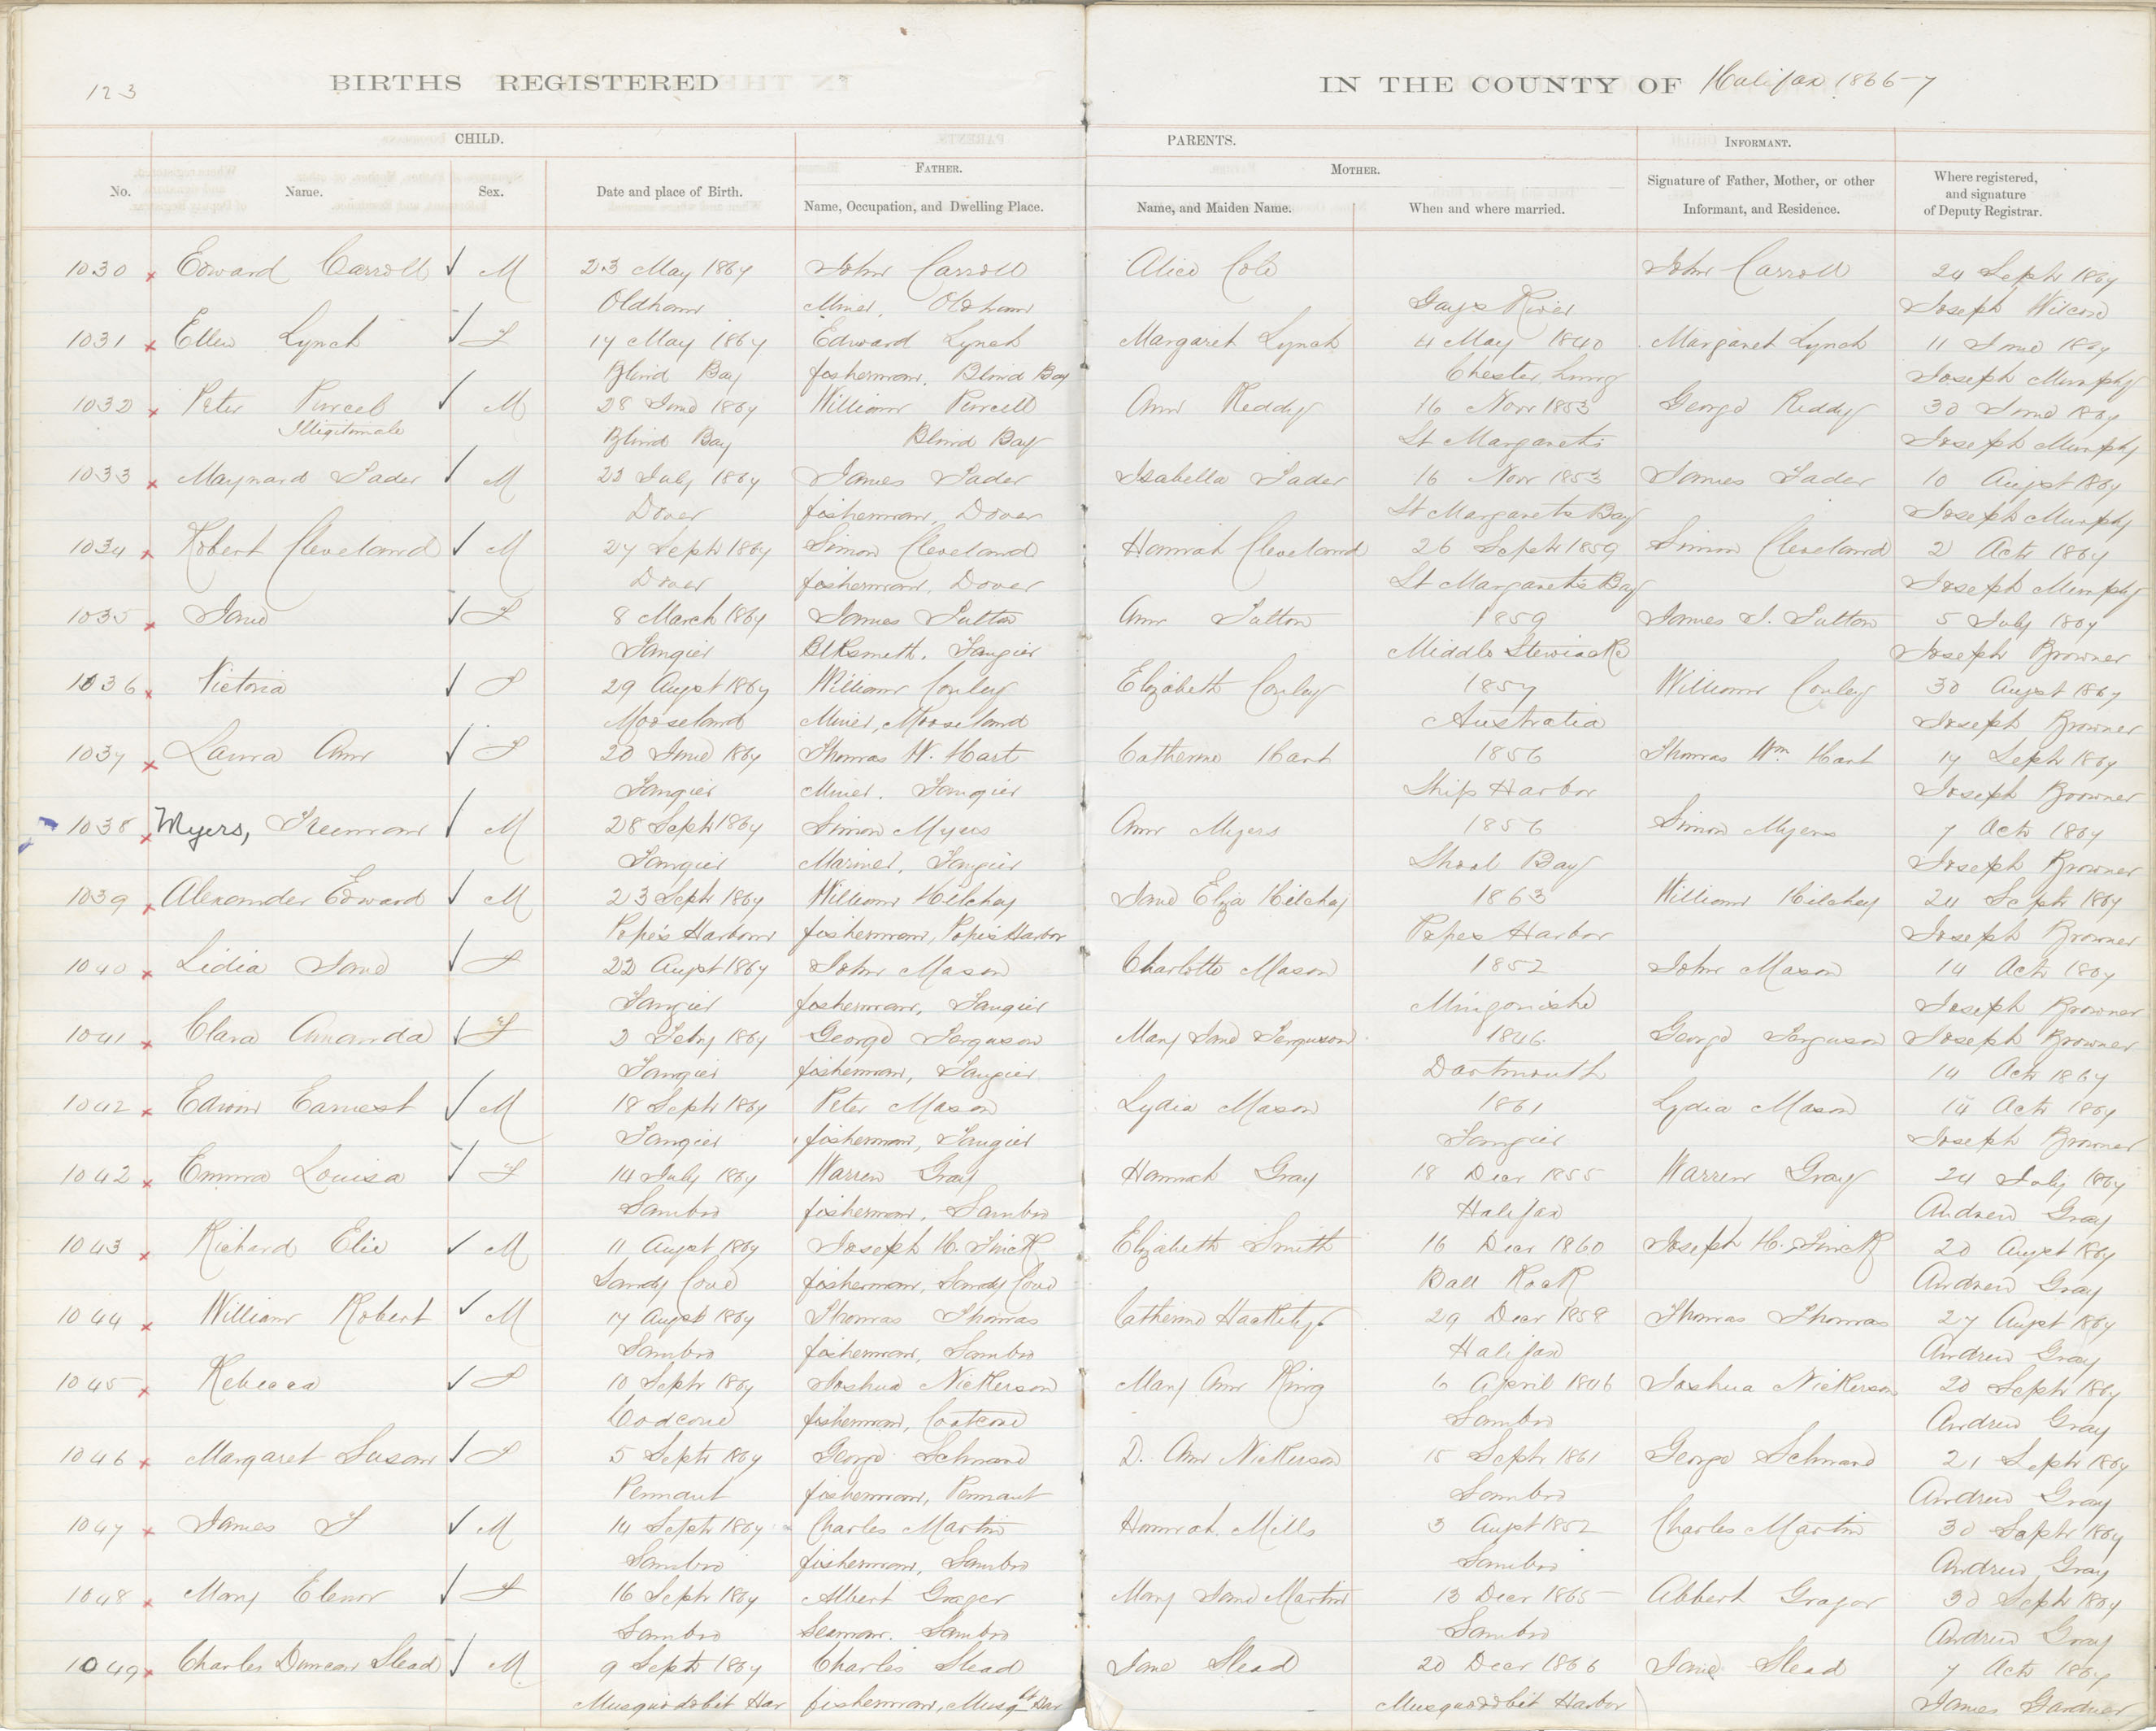 123 BIRTHS REGISTERED IN THE COUNTY OF Halifax 1866-7
CHILD. PARENTS. INFORMANT.
FATHER. MOTHER.
No. Name. Sex. Date and place of Birth. Name, Occupation, and Dwelling Place. Name, and Maiden Name. When and where married. Signature of Father, Mother, or other Informant, and Residence. Where registered, and signature of Deputy Registrar.
1030 Edward Carroll M 23 May 1867 John Carroll Alice Cole John Carroll 24 Septr 1867
Oldham Miner, Oldham Gays River Joseph Wilcox
1031 Ellen Lynch F 17 May 1867 Edward Lynch Margaret Lynch 4 May 1840 Margaret Lynch 11 June 1867
Blind Bay fisherman, Blind Bay Chester, Lung Joseph Murphy
1032 Peter Purcel M 28 June 1867 William Purcell Ann Reddy 16 Novr 1853 George Reddy 30 June 1867
Illigitimate Blind Bay Blind Bay St Margarets Joseph Murphy
1033 Maynard Fader M 22 July 1867 James Fader Isabella Fader 16 Novr 1853 James Fader 10 Augst 1867
Dover fisherman, Dover St Margarets Bay Joseph Murphy
1034 Robert Cleveland M 27 Septr 1867 Simon Cleveland Hannah Cleveland 26 Septr 1859 Simon Cleveland 2 Octr 1867
Dover fisherman, Dover St Margarets Bay Joseph Murphy
1035 Jane F 8 March 1867 James Sutton Ann Sutton 1859 James S. Sutton 5 July 1867
Tangier Blksmith, Tangier Middle Stewiacke Joseph Browner
1036 Victoria F 29 Augst 1867 William Conley Elizabeth Conley 1857 William Conley 30 Augst 1867
Mooseland Miner, Mooseland Australia Joseph Browner
1037 Laura Ann F 20 June 1867 Thomas W. Hart Catherine Hart 1856 Thomas Wm Hart 17 Septr 1867
Tangier Miner. Tangier Ship Harbor Joseph Browner
1038 Myers, Freeman M 28 Septr 1867 Simon Myers Ann Myers 1856 Simon Myers 7 Octr 1867
Tangier Mariner, Tangier Shoal Bay Joseph Browner
1039 Alexander Edward M 23 Septr 1867 William Hilchey Jane Eliza Hilchey 1863 William Hilchey 24 Septr 1867
Pope's Harbour fisherman, Popes Harbor Popes Harbor Joseph Browner
1040 Lidia Jane F 22 Augst 1867 John Mason Charlotte Mason 1852 John Mason 14 Octr 1867
Tangier fisherman, Tangier Joseph Browner
1041 Clara Amanda F 2 Feby 1867 George Ferguson Mary Jane Ferguson 1846 George Ferguson Joseph Browner
Tangier fisherman, Tangier Dartmouth 14 Octr 1867
1042 Edwin Earnest M 18 Septr 1867 Peter Mason Lydia Mason 1861 Lydia Mason 14 Octr 1867
Tangier fisherman, Tangier Tangier Joseph Browner
1042 Emma Louisa F 14 July 1867 Warren Gray Hannah Gray 18 Decr 1855 Warren Gray 24 July 1867
Sambro fisherman, Sambro Halifax Andrew Gray
1043 Richard Elie M 11 Augst 1867 Joseph H. Finck Elizabeth Smith 16 Decr 1860 Joseph H. Finck 20 Augst 1867
Sandy Cove fisherman, Sandy Cove Ball Rock Andrew Gray
1044 William Robert M 17 Augst 1867 Thomas Thomas Catherine 29 Decr 1858 Thomas Thomas 27 Augst 1867
Sambro fisherman, Sambro Halifax Andrew Gray
1045 Rebecca F 10 Septr 1867 Joshua Nickerson Mary Ann King 6 April 1846 Joshua Nickerson 20 Septr 1867
Codcove fisherman, Coatcove Sambro Andrew Gray
1046 Margaret Susan F 5 Septr 1867 George Schnare D. Ann Nickerson 15 Septr 1861 George Schnare 21 Septr 1867
Pennant fisherman, Pennant Sambro Andrew Gray
1047 James F M 14 Septr 1867 Charles Martin Hannah Mills 3 Augst 1852 Charles Martin 30 Septr 1867
Sambro fisherman, Sambro Sambro Andrew Gray
1048 Mary Elenor F 16 Septr 1867 Albert Grager Mary Jane Martin 13 Decr 1865 Abbert Gragor 30 Septr 1867
Sambro Seaman. Sambro Sambro Andrew Gray
1049 Charles Duncan Slead M 9 Septr 1867 Charles Slead Jane Slead 20 Decr 1866 Jane Slead 7 Octr 1867
Musquodobit Har fisherman, Musqbt Har Musquodobit Harbor James Gardner